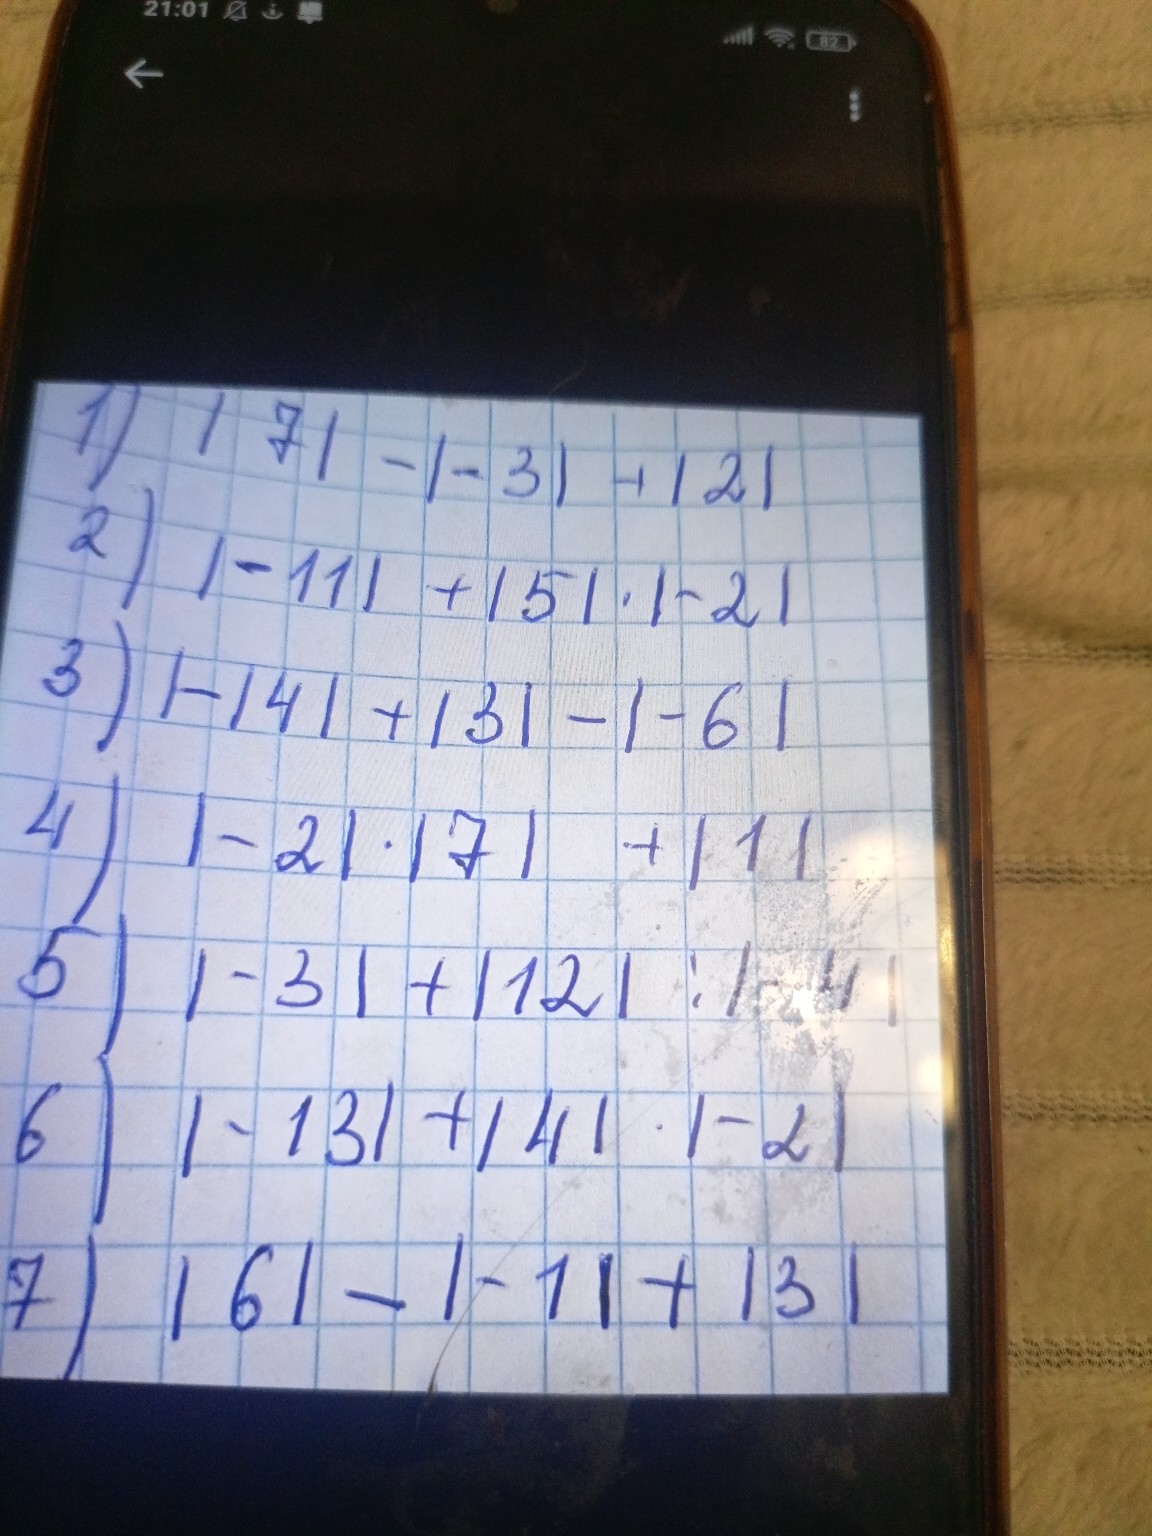 21:01
82
1) |7| - |-3| + |2|
2) |-11| + |5| · |-2|
3) |-14| + |3| - |-6|
4) |-2| · |7| + |1|
5) |-3| + |12| : |-4|
6) |-13| + |4| · |-2|
7) |6| - |-1| + |3|